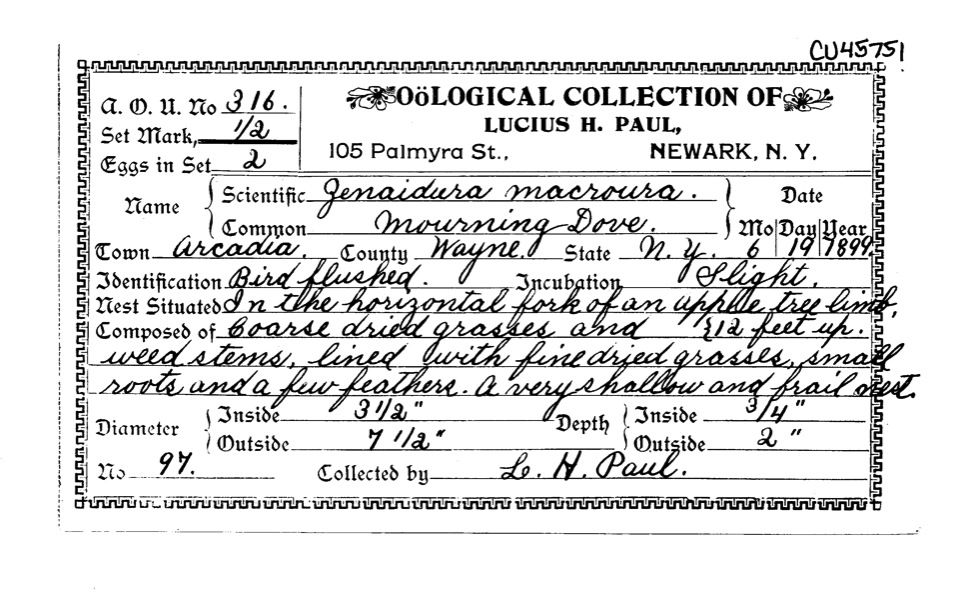 CU45751
A. O. U. No 316.
Set Mark, 1/2
Eggs in Set 2
OöLOGICAL COLLECTION OF
LUCIUS H. PAUL,
105 Palmyra St., NEWARK, N. Y.
Name Scientific Zenaidura macroura. Date
Common Mourning Dove. Mo Day Year
Town Arcadia. County Wayne. State N. Y. 6 19 1899
Identification Bird flushed. Incubation Slight.
Nest Situated In the horizontal fork of an apple tree limb,
Composed of Coarse dried grasses and {12 feet up.
weed stems, lined with fine dried grasses, small
roots and a few feathers. A very shallow and frail nest.
Diameter Inside 3 1/2" Depth Inside 3/4"
Outside 7 1/2" Outside 2"
No 97. Collected by L. H. Paul.